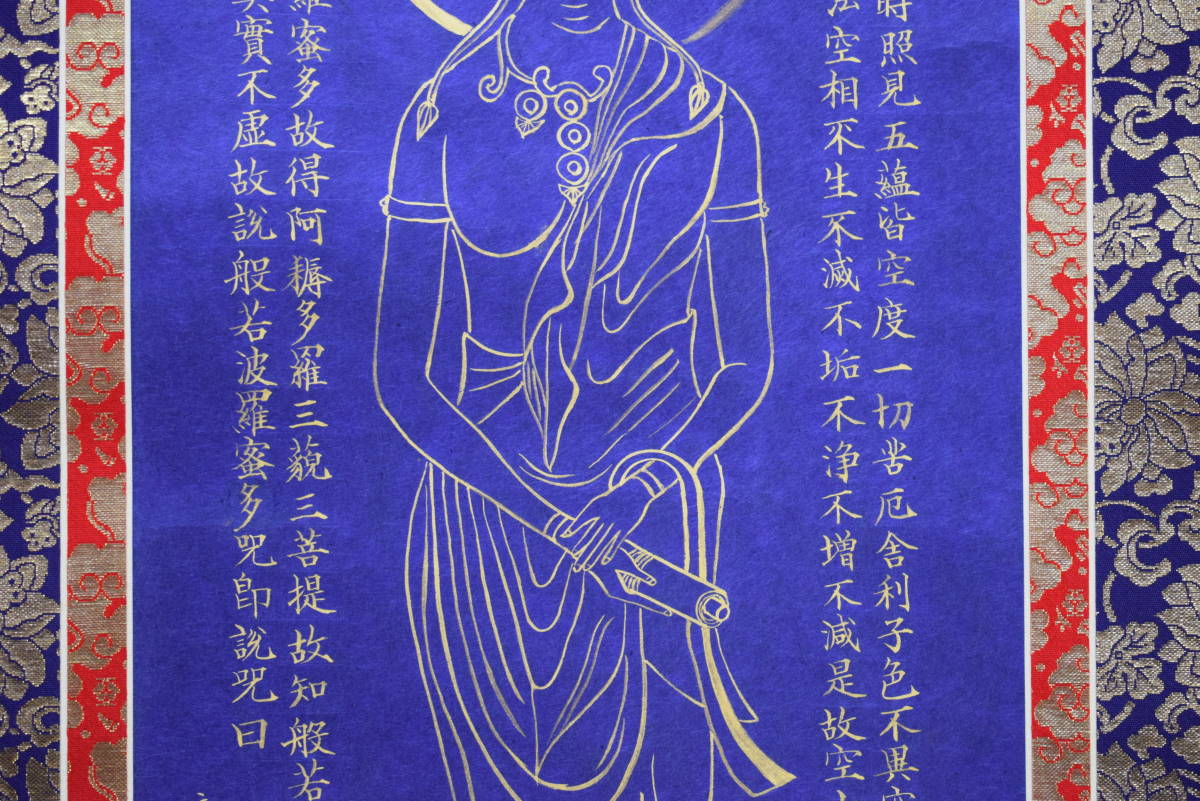 時照見五蘊皆空度一切苦厄舎利子色不異空
法空相不生不滅不垢不浄不増不減是故空
羅蜜多故得阿耨多羅三藐三菩提故知般若
真實不虚故説般若波羅蜜多呪即説呪曰